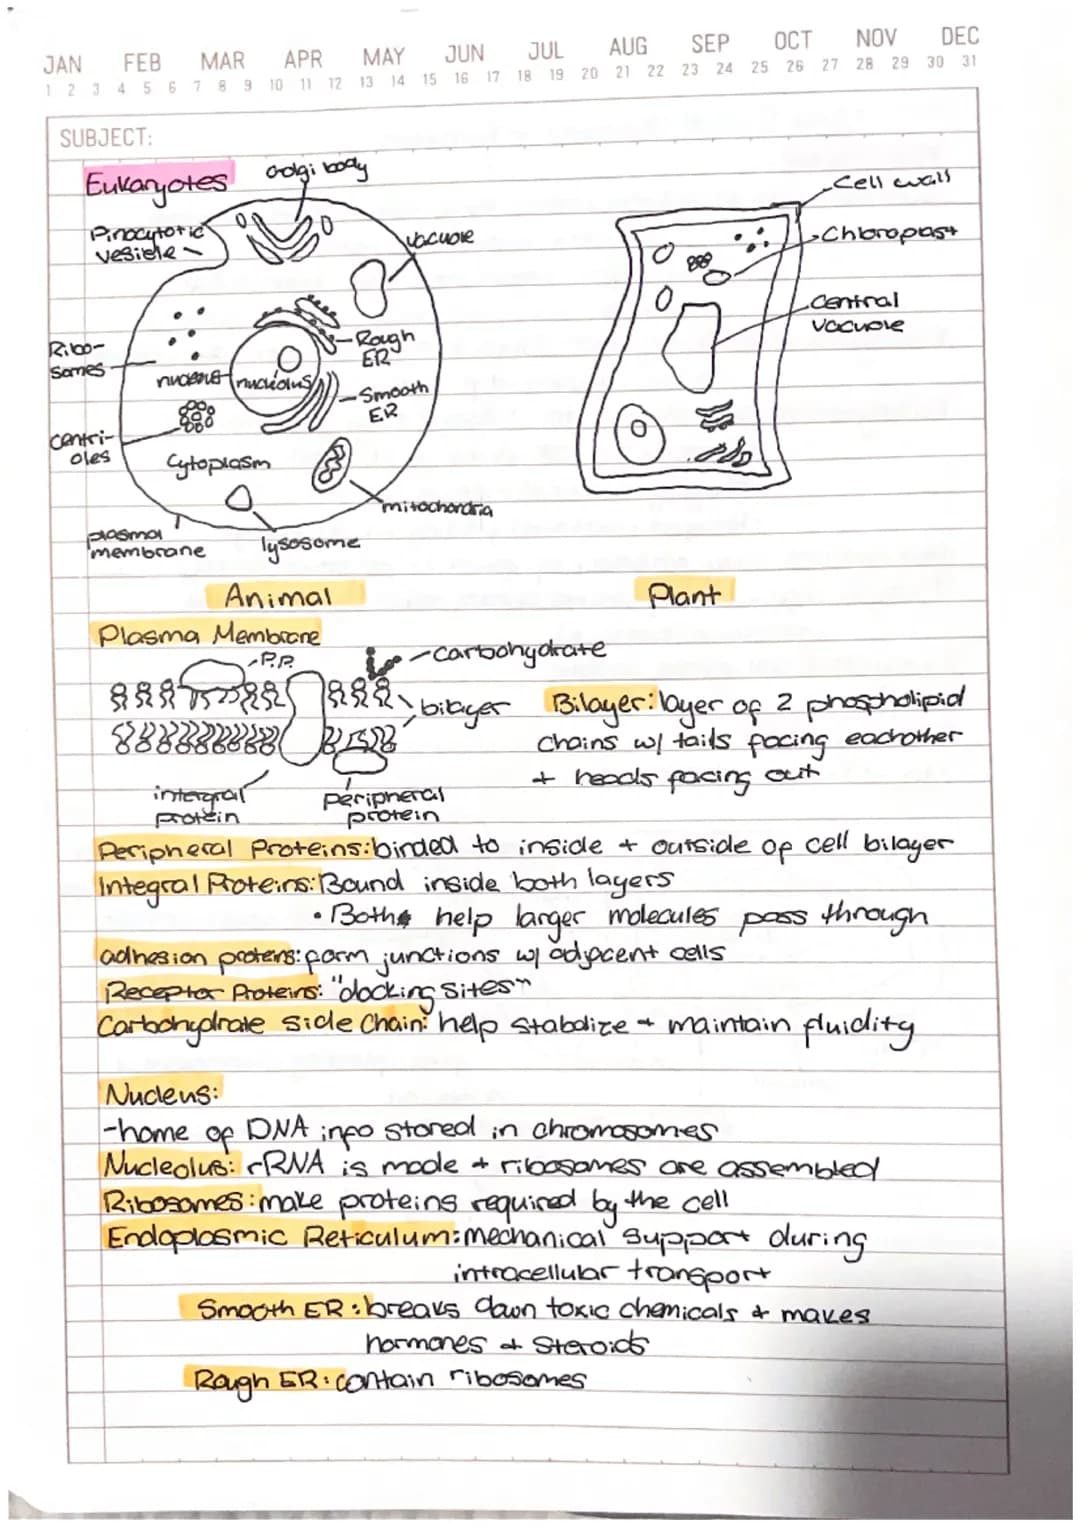 JAN FEB MAR APR MAY JUN JUL AUG SEP OCT NOV DEC
1 2 3 4 5 6 7 8 9 10 11 12 13 14 15 16 17 18 19 20 21 22 23 24 25 26 27 28 29 30 31
SUBJECT:
Eukaryotes
Golgi body
Pinocytotic
vesicle
vacuole
Ribo-
somes
Rough
ER
nucleus
nucleolus
Smooth
ER
Centri-
oles
Cytoplasm
mitochondria
plasma
membrane
lysosome
Cell wall
Chloroplast
Central
vacuole
Animal
Plant
Plasma Membrane
P.P.
carbohydrate
bilayer
intergral
protein
peripheral
protein
Bilayer: layer of 2 phospholipid
chains w/ tails facing eachother
+ heads facing out
Peripheral Proteins: binded to inside + outside of cell bilayer
Integral Proteins: Bound inside both layers
• Both help larger molecules pass through
adhesion proteins: form junctions w/ adjacent cells
Receptor Proteins: "docking sites"
Carbohydrate side Chain: help stabolize + maintain fluidity
Nucleus:
-home of DNA info stored in chromosomes
Nucleolus: rRNA is made + ribosomes are assembled
Ribosomes: make proteins required by the cell
Endoplasmic Reticulum: mechanical support during
intracellular transport
Smooth ER: breaks down toxic chemicals + makes
hormones + steroids
Rough ER: contain ribosomes